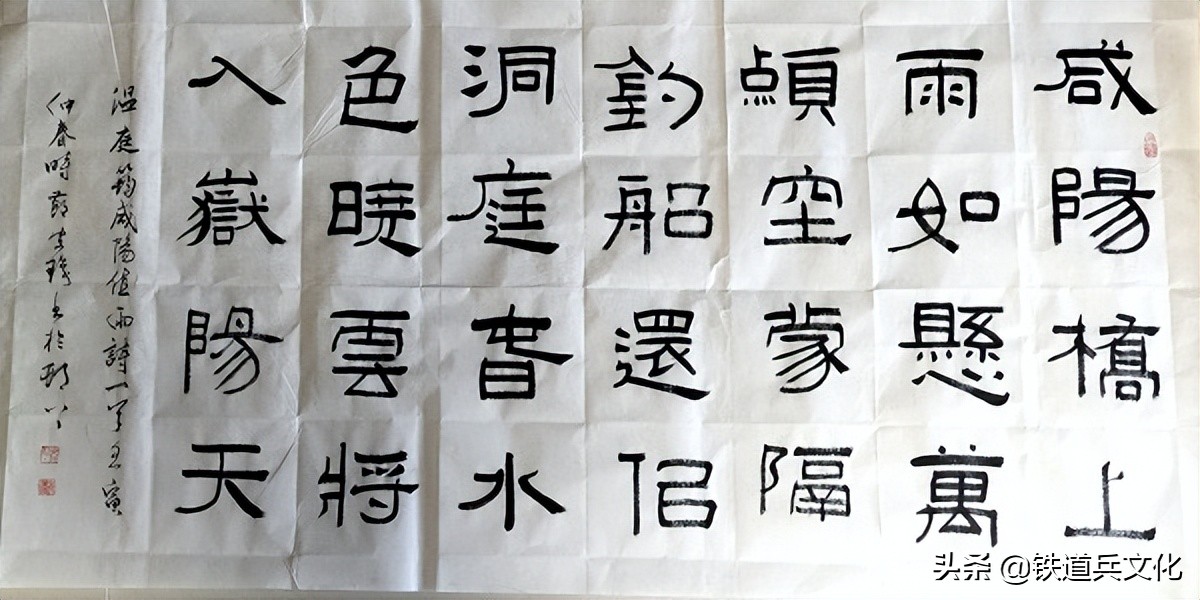 咸陽橋上
雨如懸萬
點空蒙隔
釣船還佀
洞庭旾水
色曉雲將
入嶽陽天
温庭筠咸陽值雨詩一首壬寅
仲春時節書於
头条 @铁道兵文化